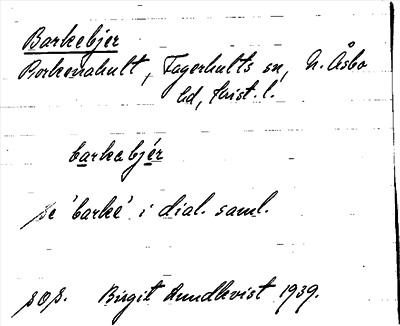 Barkebjer
Borkenahult, Fagerhults sn, N. Åsbo
hd, Krist. l.
barkabjér
se 'barke' i dial. saml.
sos. Birgit Rundkvist 1939.